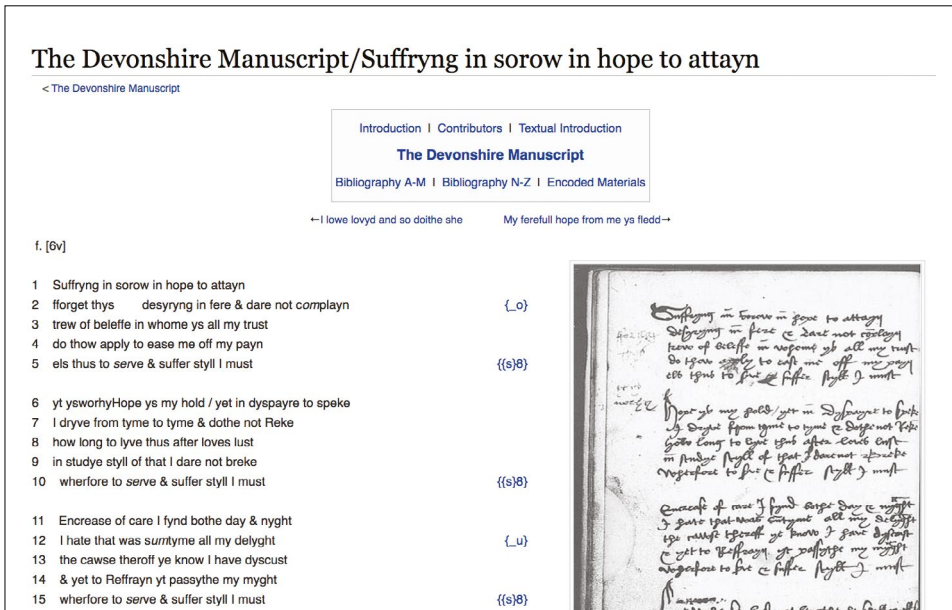 The Devonshire Manuscript/Suffryng in sorow in hope to attayn
< The Devonshire Manuscript
Introduction | Contributors | Textual Introduction
The Devonshire Manuscript
Bibliography A-M | Bibliography N-Z | Encoded Materials
←I lowe lovyd and so doithe she My ferefull hope from me ys fledd→
f. [6v]
1 Suffryng in sorow in hope to attayn
2 fforget thys desyryng in fere & dare not complayn {_o}
3 trew of beleffe in whome ys all my trust
4 do thow apply to ease me off my payn
5 els thus to serve & suffer styll I must {{s}8}
6 yt ysworhyHope ys my hold / yet in dyspayre to speke
7 I dryve from tyme to tyme & dothe not Reke
8 how long to lyve thus after loves lust
9 in studye styll of that I dare not breke
10 wherfore to serve & suffer styll I must {{s}8}
11 Encrease of care I fynd bothe day & nyght
12 I hate that was sumtyme all my delyght {_u}
13 the cawse theroff ye know I have dyscust
14 & yet to Reffrayn yt passythe my myght
15 wherfore to serve & suffer styll I must {{s}8}
Suffryng in sorow in hope to attayn
desyryng in fere & dare not coplayn
trew of beleffe in whome ys all my trust
do thow apply to ease me off my payn
els thus to & suffer styll I must
Hope ys my hold / yet in dyspayre to speke
I dryve from tyme to tyme & dothe not Reke
how long to lyve thus after loves lust
in studye styll of that I dare not breke
wherfore to & suffer styll I must
Encrease of care I fynd bothe day & nyght
I hate that was all my delyght
the cawse theroff ye know I have dyscust
& yet to Reffrayn yt passythe my myght
wherfore to & suffer styll I must